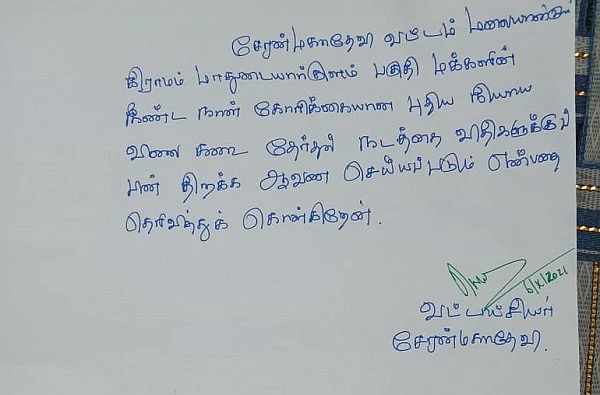 சேரன்மகாதேவி வட்டம் மலையான்குளம்
கிராமம் மாதுடையார்குளம் பகுதி மக்களின்
நீண்ட நாள் கோரிக்கையான புதிய நியாய
விலை கடை தேர்தல் நடத்தை விதிகளுக்குப்
பின் திறக்க ஆவண செய்யப்படும் என்பதை
தெரிவித்துக் கொள்கிறேன்.
6/X/2021
வட்டாட்சியர்
சேரன்மகாதேவி.